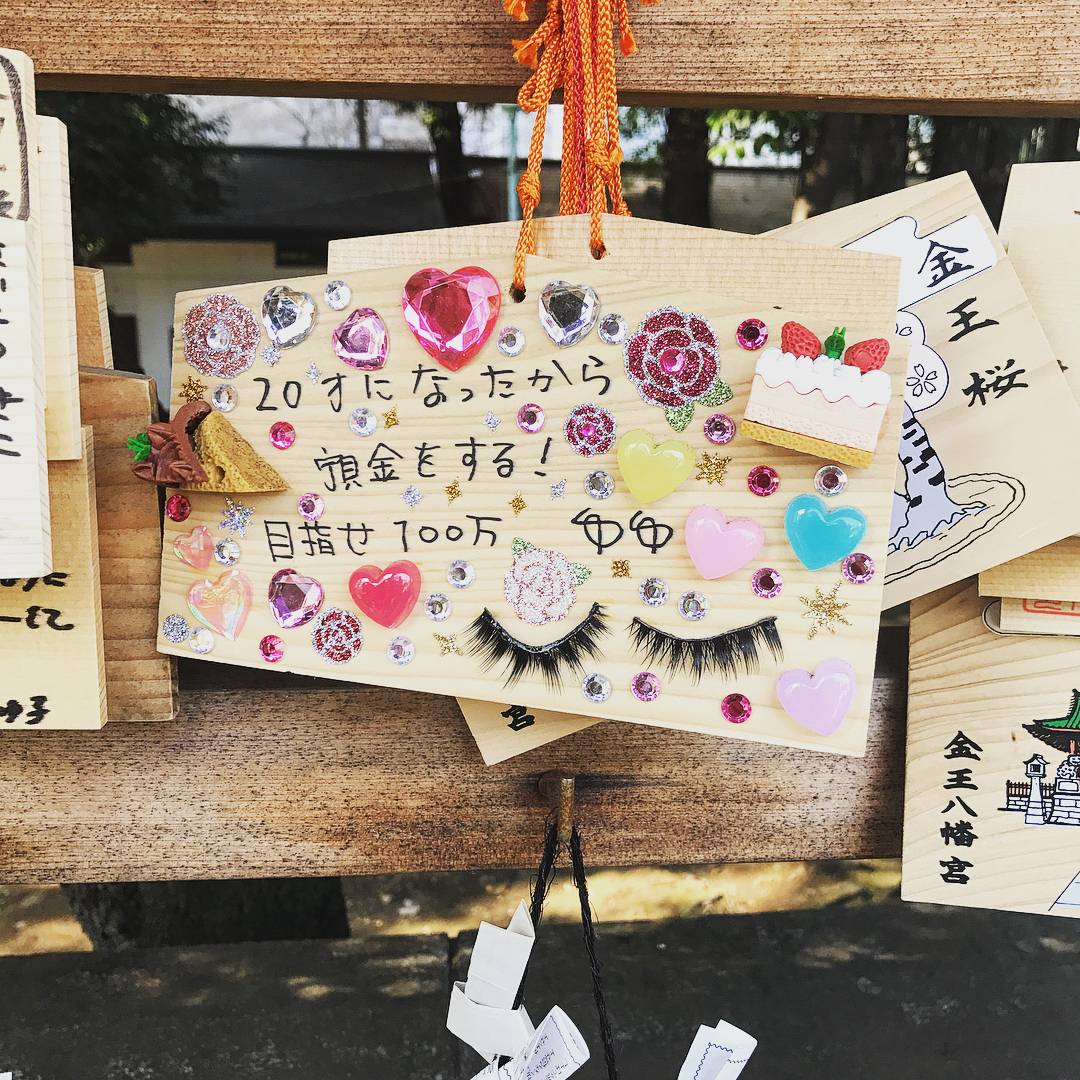 20才になったから
預金をする!
目指せ100万 ゆゆ
金王桜
金王八幡宮
宮